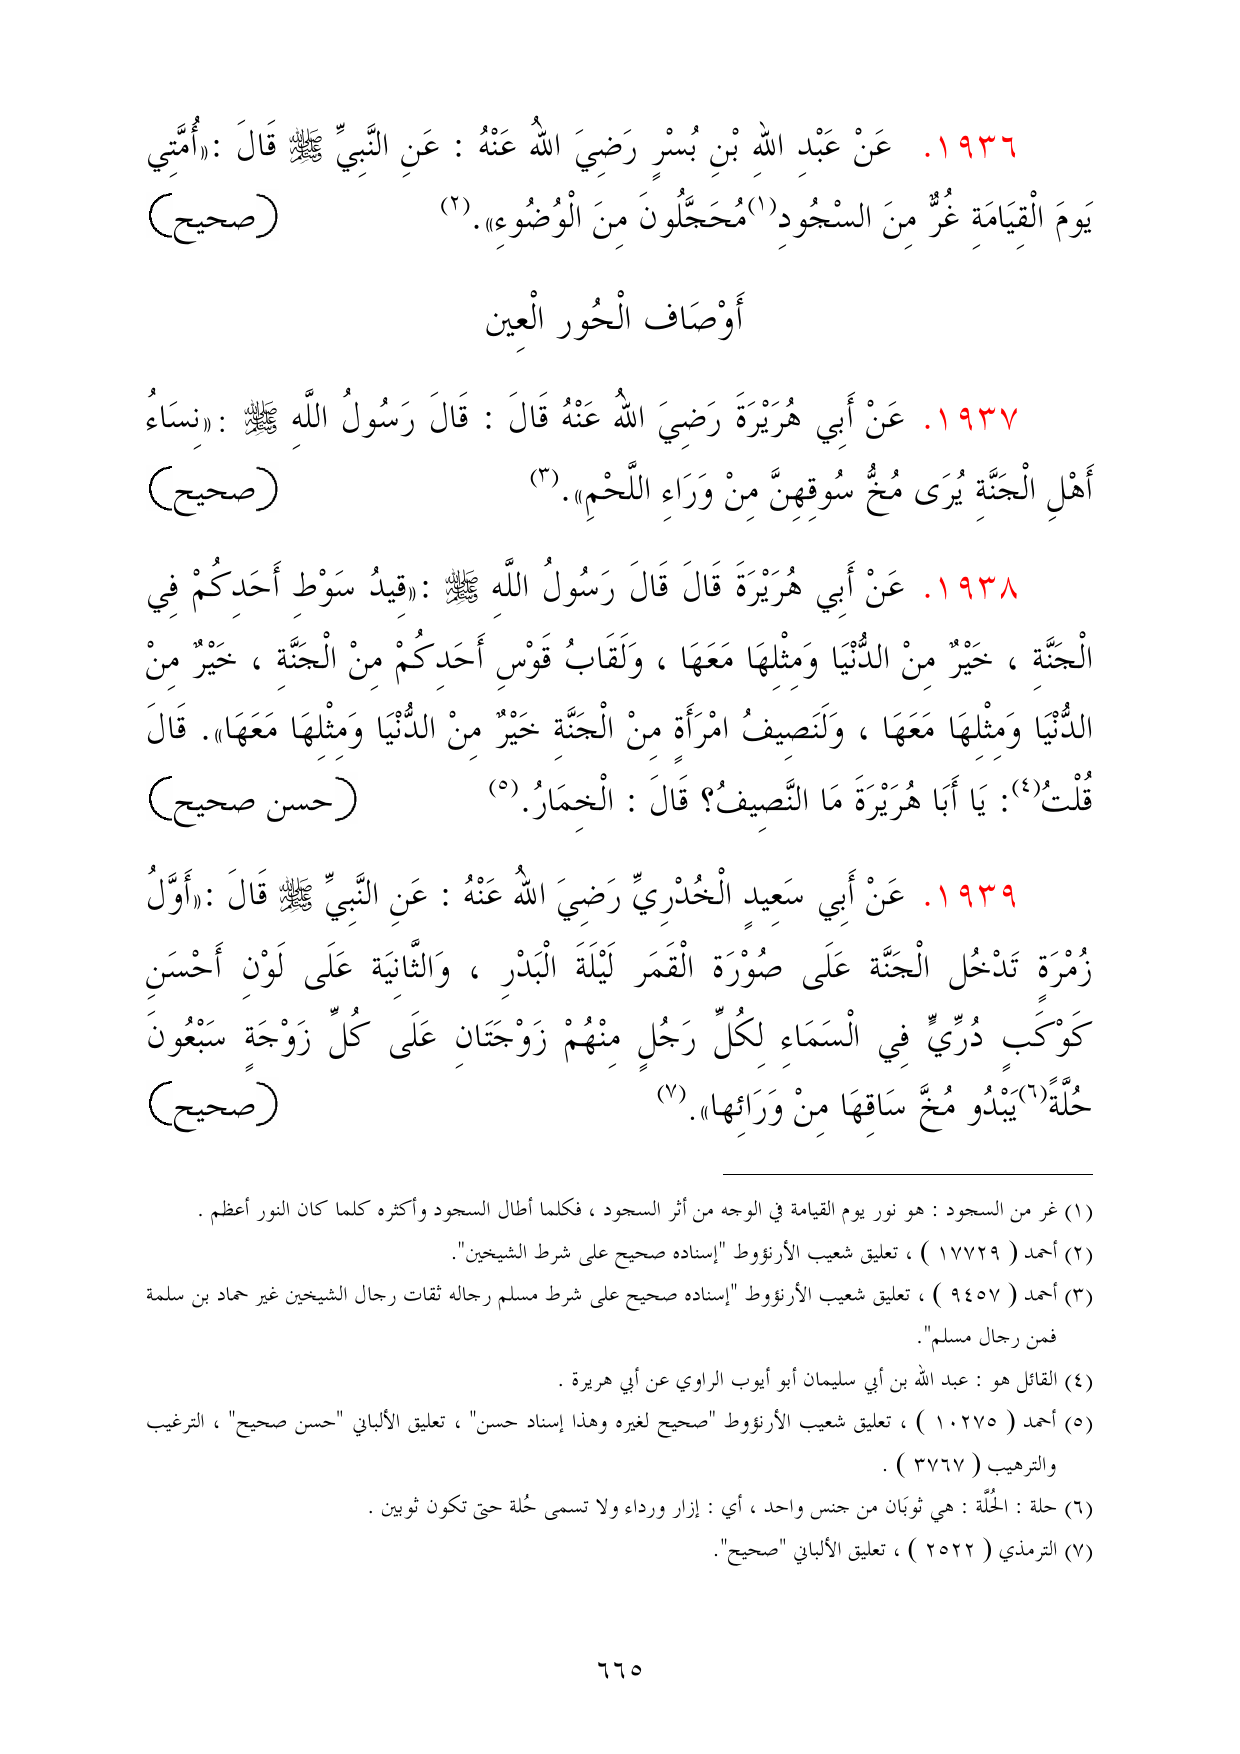 ١٩٣٦. عَنْ عَبْدِ اللهِ بْنِ بُسْرٍ رَضِيَ اللهُ عَنْهُ : عَنِ النَّبِيِّ ﷺ قَالَ :«أُمَّتِي
يَومَ الْقِيَامَةِ غُرٌّ مِنَ السْجُودِ(١)مُحَجَّلُونَ مِنَ الْوُضُوءِ».(٢) (صحيح)
أَوْصَاف الْحُور الْعِين
١٩٣٧. عَنْ أَبِي هُرَيْرَةَ رَضِيَ اللهُ عَنْهُ قَالَ : قَالَ رَسُولُ اللَّهِ ﷺ :«نِسَاءُ
أَهْلِ الْجَنَّةِ يُرَى مُخُّ سُوقِهِنَّ مِنْ وَرَاءِ اللَّحْمِ».(٣) (صحيح)
١٩٣٨. عَنْ أَبِي هُرَيْرَةَ قَالَ قَالَ رَسُولُ اللَّهِ ﷺ :«قِيدُ سَوْطِ أَحَدِكُمْ فِي
الْجَنَّةِ ، خَيْرٌ مِنْ الدُّنْيَا وَمِثْلِهَا مَعَهَا ، وَلَقَابُ قَوْسِ أَحَدِكُمْ مِنْ الْجَنَّةِ ، خَيْرٌ مِنْ
الدُّنْيَا وَمِثْلِهَا مَعَهَا ، وَلَنَصِيفُ امْرَأَةٍ مِنْ الْجَنَّةِ خَيْرٌ مِنْ الدُّنْيَا وَمِثْلِهَا مَعَهَا». قَالَ
قُلْتُ(٤): يَا أَبَا هُرَيْرَةَ مَا النَّصِيفُ؟ قَالَ : الْخِمَارُ.(٥) (حسن صحيح)
١٩٣٩. عَنْ أَبِي سَعِيدٍ الْخُدْرِيِّ رَضِيَ اللهُ عَنْهُ : عَنِ النَّبِيِّ ﷺ قَالَ :«أَوَّلُ
زُمْرَةٍ تَدْخُل الْجَنَّة عَلَى صُوْرَة الْقَمَر لَيْلَةَ الْبَدْرِ ، وَالثَّانِيَة عَلَى لَوْنِ أَحْسَنِ
كَوْكَبٍ دُرِّيٍّ فِي الْسَمَاءِ لِكُلِّ رَجُلٍ مِنْهُمْ زَوْجَتَانِ عَلَى كُلِّ زَوْجَةٍ سَبْعُونَ
حُلَّةً(٦)يَبْدُو مُخَّ سَاقِهَا مِنْ وَرَائِها».(٧) (صحيح)
(١) غر من السجود : هو نور يوم القيامة في الوجه من أثر السجود ، فكلما أطال السجود وأكثره كلما كان النور أعظم .
(٢) أحمد ( ١٧٧٢٩ ) ، تعليق شعيب الأرنؤوط "إسناده صحيح على شرط الشيخين".
(٣) أحمد ( ٩٤٥٧ ) ، تعليق شعيب الأرنؤوط "إسناده صحيح على شرط مسلم رجاله ثقات رجال الشيخين غير حماد بن سلمة
فمن رجال مسلم".
(٤) القائل هو : عبد الله بن أبي سليمان أبو أيوب الراوي عن أبي هريرة .
(٥) أحمد ( ١٠٢٧٥ ) ، تعليق شعيب الأرنؤوط "صحيح لغيره وهذا إسناد حسن" ، تعليق الألباني "حسن صحيح" ، الترغيب
والترهيب ( ٣٧٦٧ ) .
(٦) حلة : الحُلَّة : هي ثوبَان من جنس واحد ، أي : إزار ورداء ولا تسمى حُلة حتى تكون ثوبين .
(٧) الترمذي ( ٢٥٢٢ ) ، تعليق الألباني "صحيح".
٦٦٥